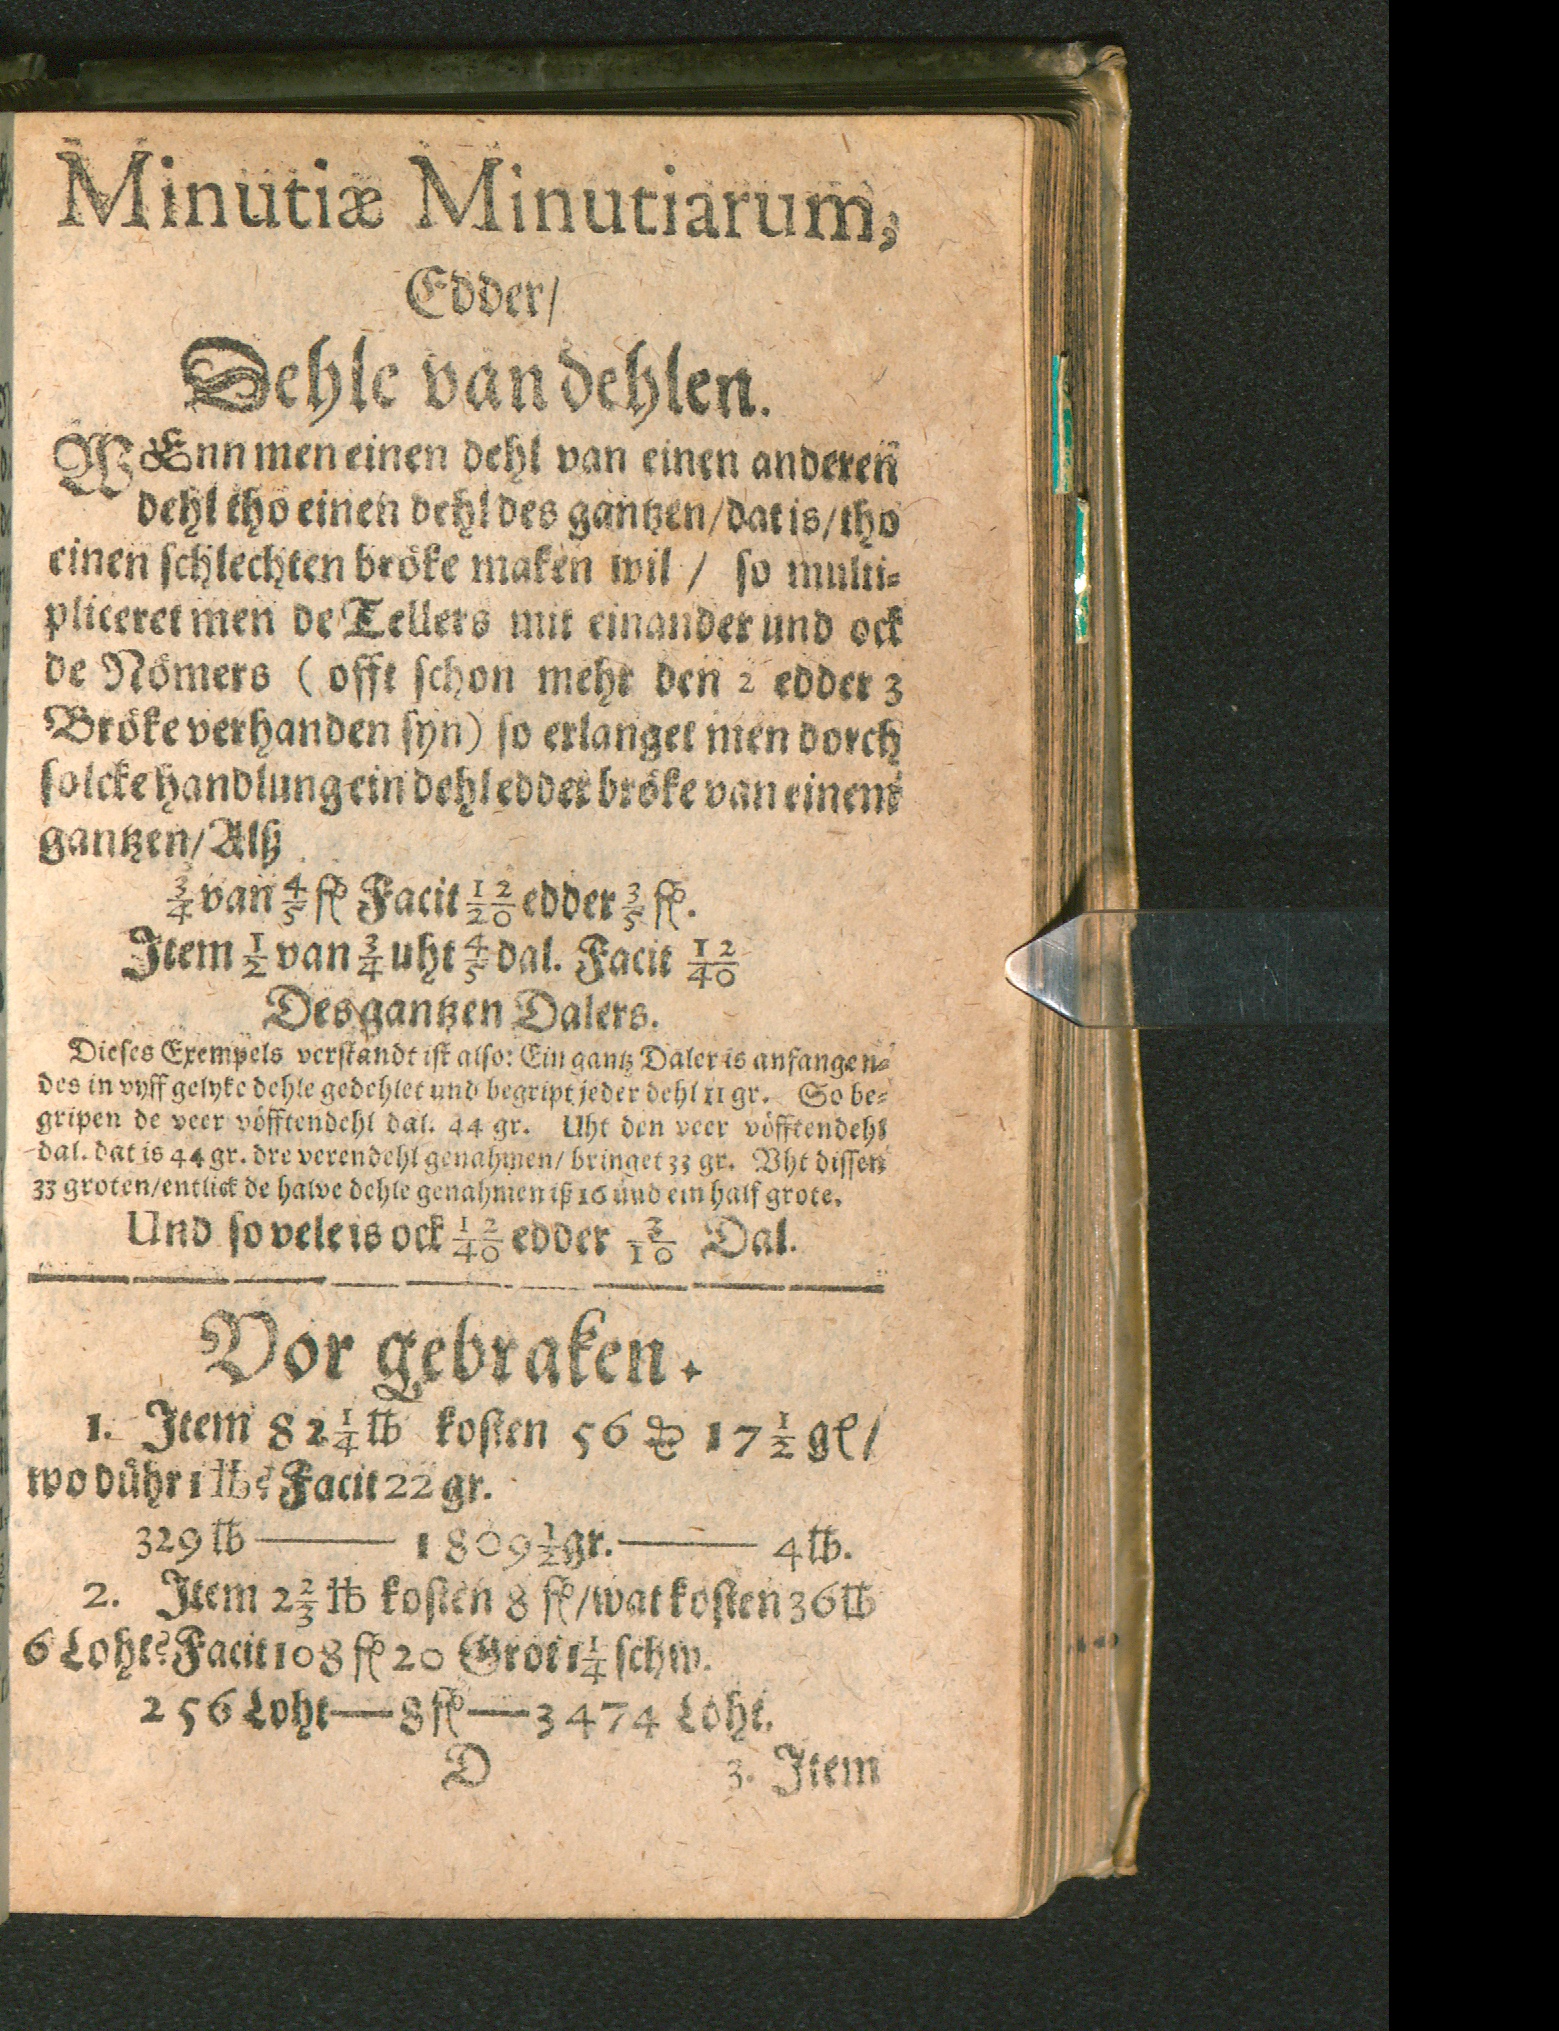 Minutiæ Minutiarum,
Edder/
Dehle van dehlen.
WEnn men einen dehl van einen anderen
dehl tho einen dehl des gantzen/dat is/tho
einen schlechten bröke maken wil / so multi-
pliceret men de Tellers mit einander und ock
de Nömers ( offt schon mehr den 2 edder 3
Bröke verhanden syn) so erlanget men dorch
solcke handlung ein dehl edder bröke van einem
gantzen/Alß
3/4 van 4/5 fl Facit 12/20 edder 3/5 fl.
Item 1/2 van 3/4 uht 4/5 dal. Facit 12/40
Des gantzen Dalers.
Dieses Exempels verstandt ist also: Ein gantz Daler is anfangen-
des in vyff gelyke dehle gedehlet und begript jeder dehl 11 gr. So be-
gripen de veer vöfftendehl dal. 44 gr. Uht den veer vöfftendehl
dal. dat is 44 gr. dre verendehl genahmen/ bringet 33 gr. Vht dissen
33 groten/entlick de halve dehle genahmen iß 16 und ein half grote.
Und so vele is ock 12/40 edder 3/10 Dal.
Vor gebraken.
1. Item 82 1/4 lb kosten 56 17 1/2 gl/
wo dühr 1 lb? Facit 22 gr.
329 lb —— 1809 1/2 gr. —— 4 lb.
2. Item 2 2/3 lb kosten 8 fl/wat kosten 36 lb
6 Loht? Facit 108 fl 20 Grot 1 1/4 schw.
256 Loht — 8 fl — 3474 Loht.
D 3. Item